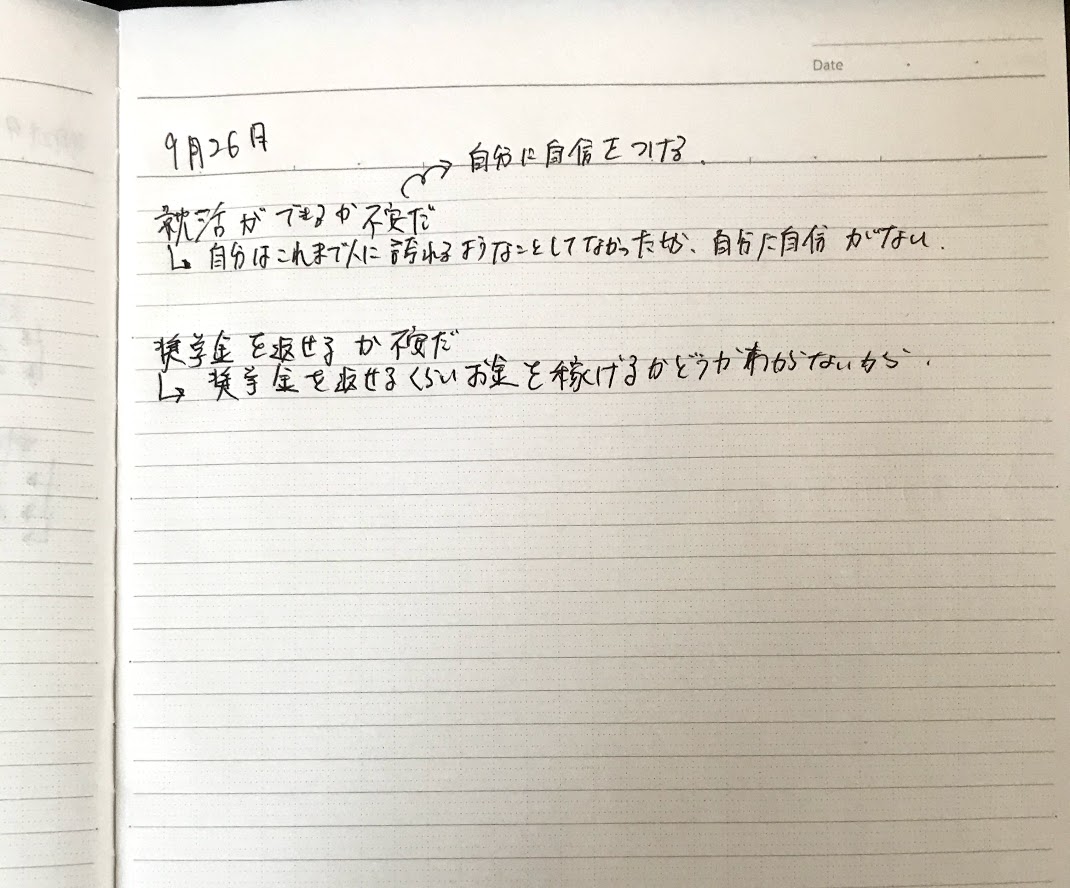 Date
9月26日
自分に自信をつける.
就活ができるか不安だ
自分はこれまで人に誇れるようなことしてなかったから、自分に自信がない.
奨学金を返せるか不安だ
奨学金を返せるくらいお金を稼げるかどうかわからないから.